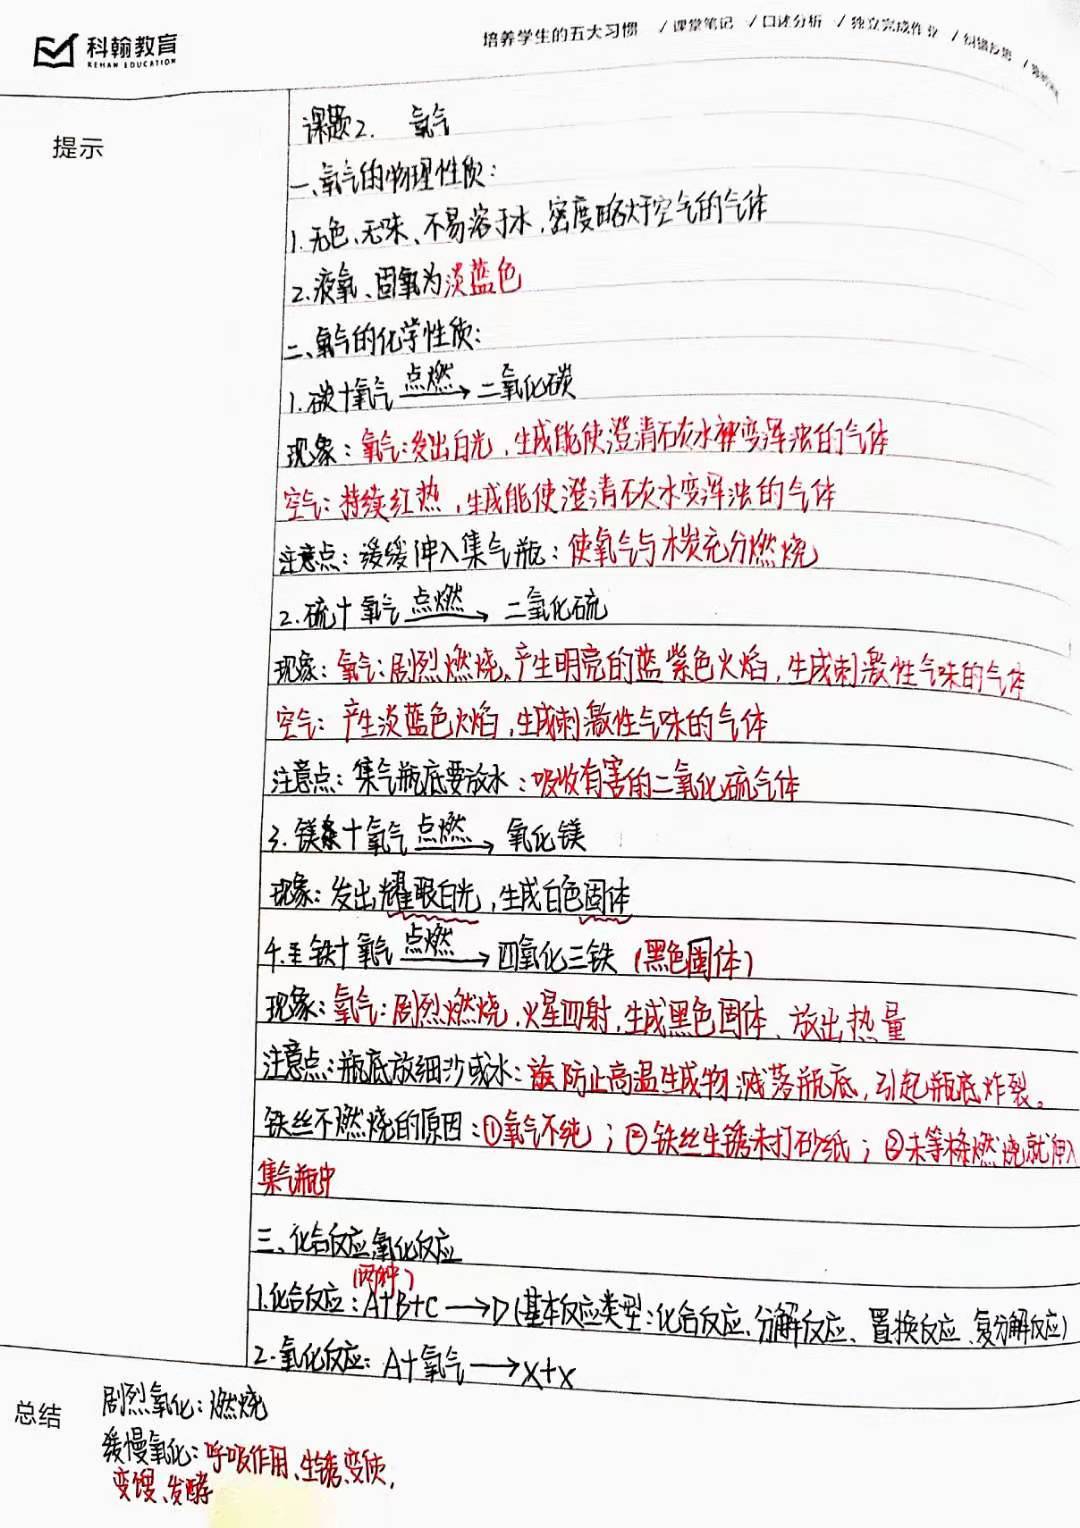 科翰教育
KEHAN EDUCATION
培养学生的五大习惯 / 课堂笔记 / 口述分析 / 独立完成作业 / 纠错反思 /
提示
课题2. 氧气
一、氧气的物理性质:
1.无色、无味、不易溶于水,密度略大于空气的气体
2.液氧、固氧为淡蓝色
二、氧气的化学性质:
1.碳+氧气 点燃→ 二氧化碳
现象:氧气:发出白光,生成能使澄清石灰水变浑浊的气体
空气:持续红热,生成能使澄清石灰水变浑浊的气体
注意点:缓缓伸入集气瓶:使氧气与木炭充分燃烧
2.硫+氧气 点燃→ 二氧化硫
现象:氧气:剧烈燃烧,产生明亮的蓝紫色火焰,生成刺激性气味的气体
空气:产生淡蓝色火焰,生成刺激性气味的气体
注意点:集气瓶底要放水:吸收有害的二氧化硫气体
3.镁条+氧气 点燃→ 氧化镁
现象:发出耀眼白光,生成白色固体
4.铁+氧气 点燃→ 四氧化三铁(黑色固体)
现象:氧气:剧烈燃烧,火星四射,生成黑色固体、放出热量
注意点:瓶底放细沙或水:防止高温生成物溅落瓶底,引起瓶底炸裂。
铁丝不燃烧的原因:①氧气不纯;②铁丝生锈未打砂纸;③未等火柴燃烧就伸入
集气瓶中
三、化合反应氧化反应
(两种)
1.化合反应:A+B+C→D(基本反应类型:化合反应、分解反应、置换反应、复分解反应)
2.氧化反应:A+氧气→X+X
总结
剧烈氧化:燃烧
缓慢氧化:呼吸作用、生锈、变质,
变馊、发酵